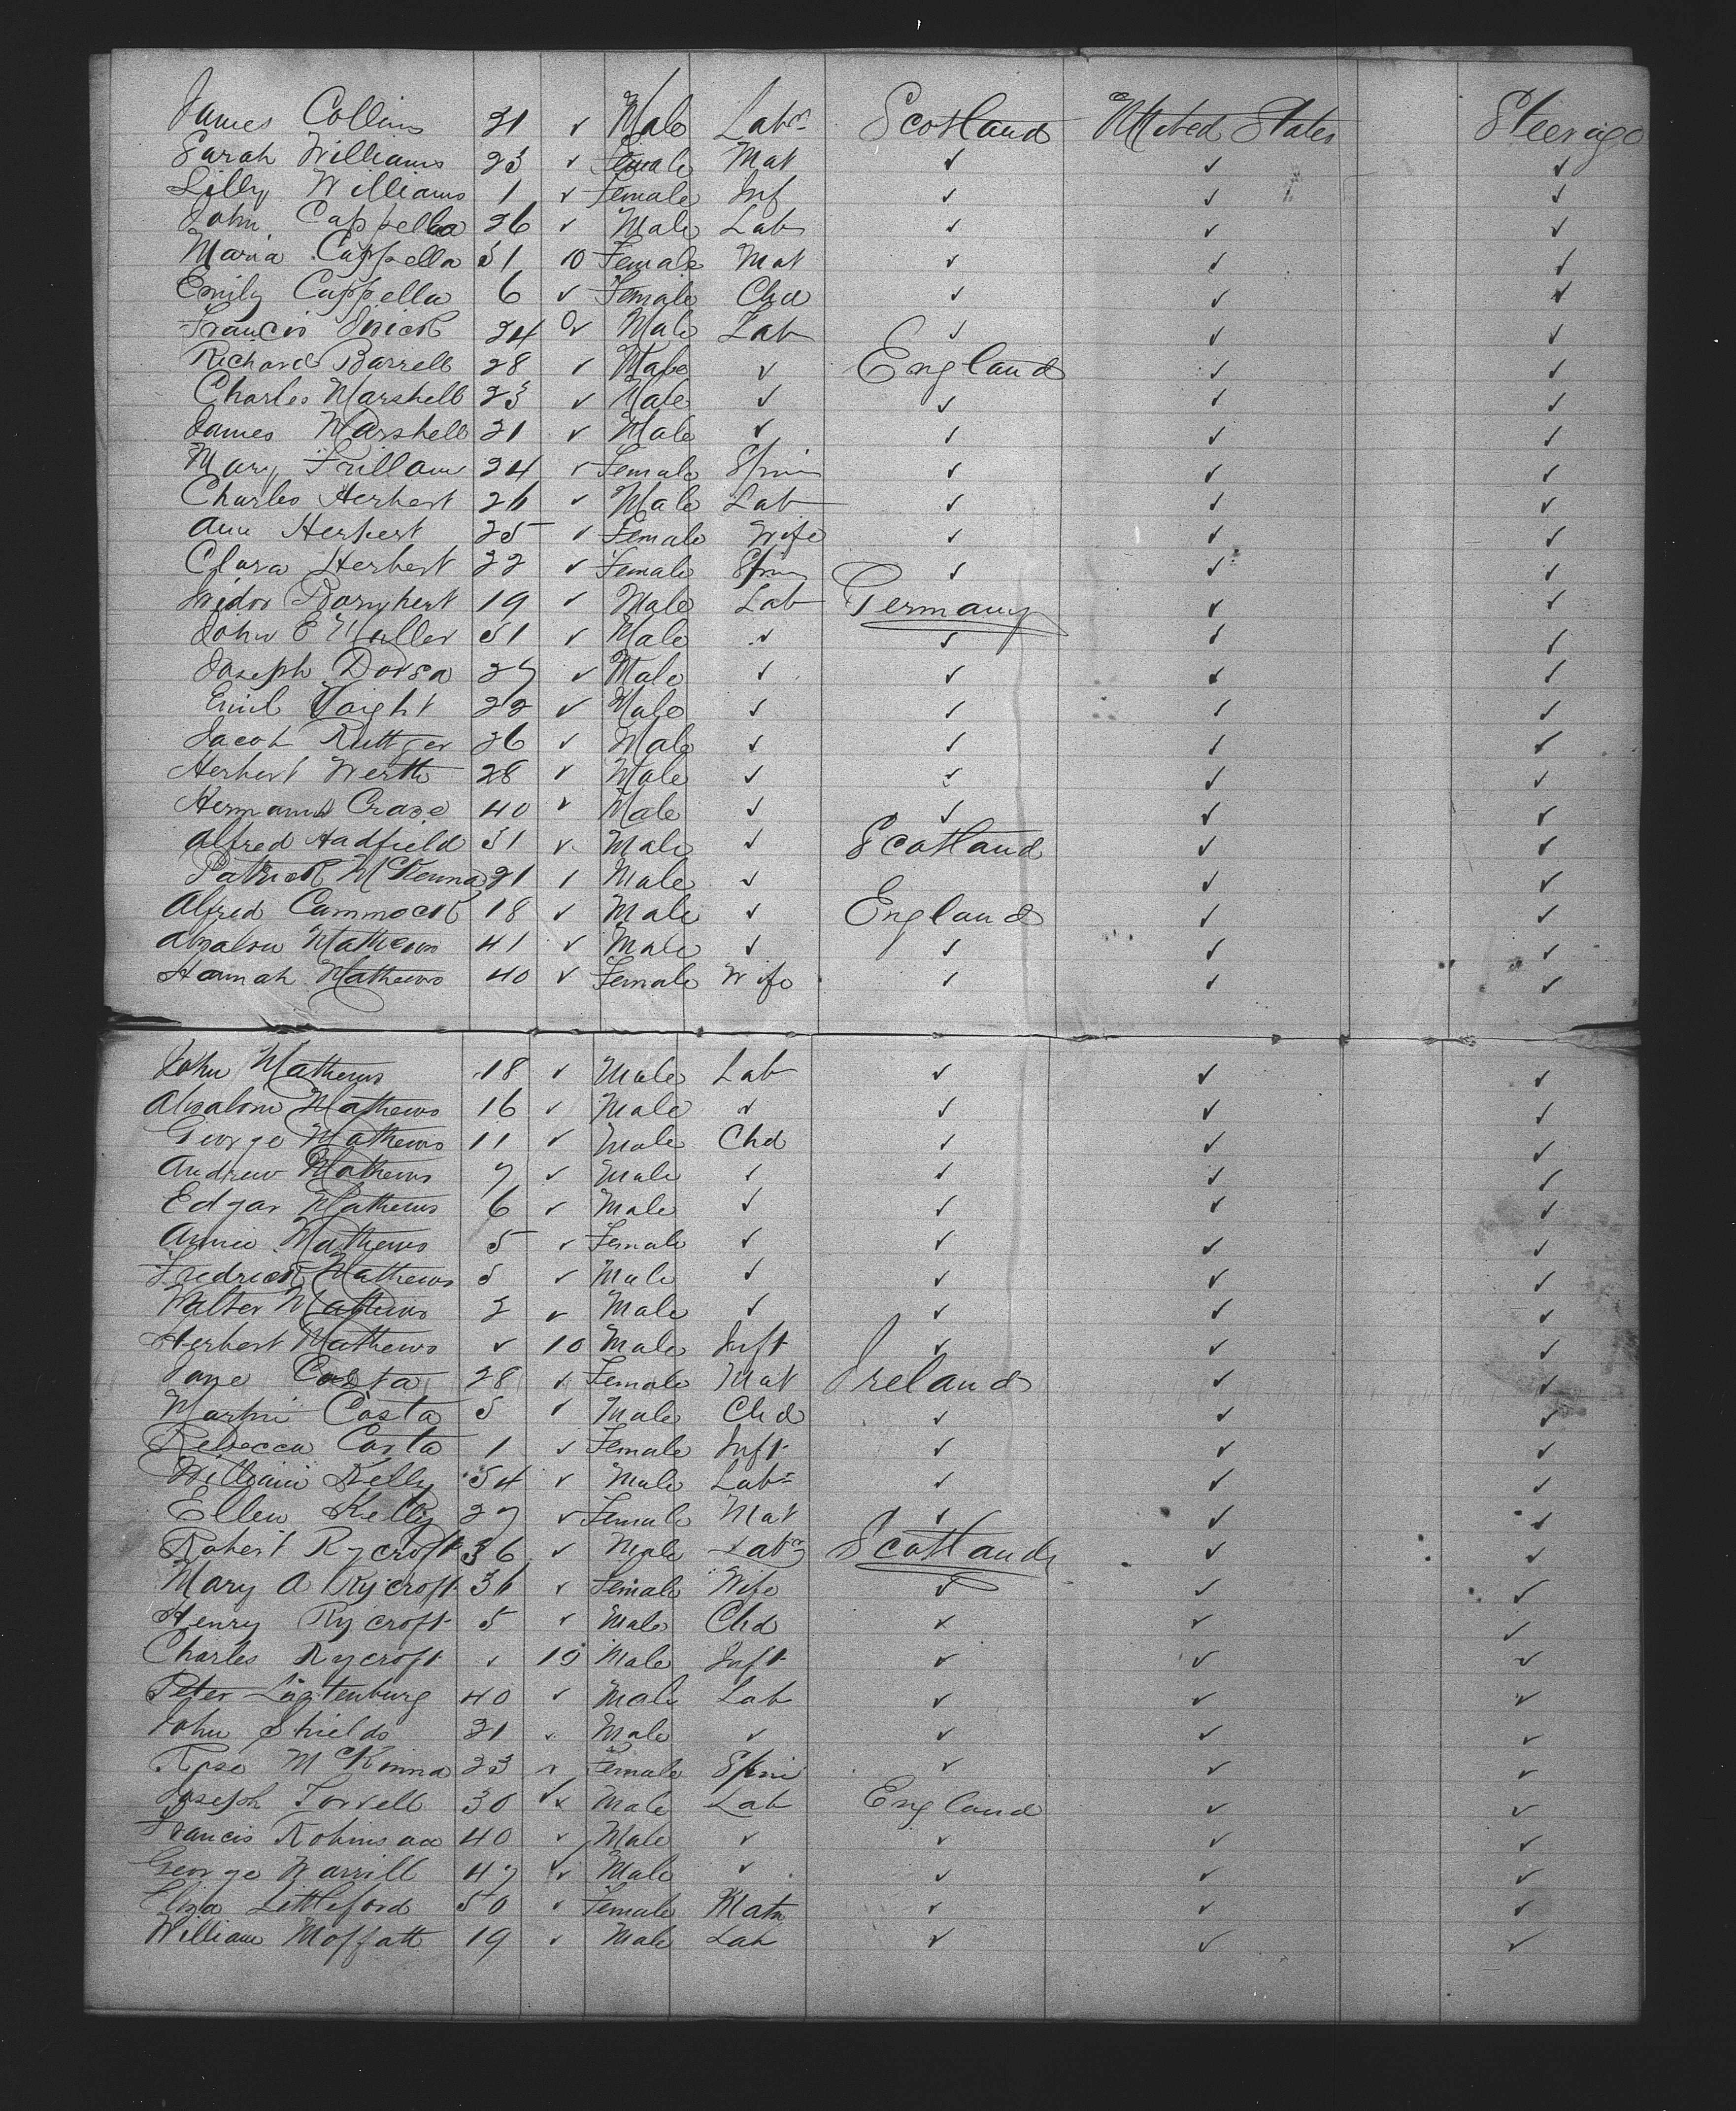 James Collins 21 ✓ Male Labr Scotland United States Steerage
Sarah Williams 23 ✓ Female Mat ✓ ✓ ✓
Lilly Williams 1 ✓ Female Inf ✓ ✓ ✓
John Cappella 26 ✓ Male Lab ✓ ✓ ✓
Maria Cappella 31 10 Female Mat ✓ ✓ ✓
Emily Cappella 6 ✓ Female Chd ✓ ✓ ✓
Francis 24 ✓ Male Lab ✓ ✓ ✓
Richard Barrell 28 ✓ Male ✓ England ✓ ✓
Charles Marshell 23 ✓ Male ✓ ✓ ✓ ✓
James Marshell 21 ✓ Male ✓ ✓ ✓ ✓
Mary 24 ✓ Female Spin ✓ ✓ ✓
Charles Herbert 26 ✓ Male Lab ✓ ✓ ✓
Ann Herbert 25 ✓ Female Wife ✓ ✓ ✓
Clara Herbert 22 ✓ Female Spin ✓ ✓ ✓
Isidor 19 ✓ Male Lab Germany ✓ ✓
John E Muller 31 ✓ Male ✓ ✓ ✓ ✓
Joseph Dorsa 27 ✓ Male ✓ ✓ ✓ ✓
Emil Voight 22 ✓ Male ✓ ✓ ✓ ✓
Jacob Ruttger 26 ✓ Male ✓ ✓ ✓ ✓
Herbert Werth 28 ✓ Male ✓ ✓ ✓ ✓
Hermann Crase 40 ✓ Male ✓ ✓ ✓ ✓
Alfred Hadfield 31 ✓ Male ✓ Scotland ✓ ✓
Patrick McKenna 21 1 Male ✓ ✓ ✓
Alfred Cammock 18 ✓ Male ✓ England ✓ ✓
Absalom Mathews 41 ✓ Male ✓ ✓ ✓ ✓
Hannah Mathews 40 ✓ Female Wife ✓ ✓ ✓
John Mathews 18 ✓ Male Lab ✓ ✓ ✓
Absalom Mathews 16 ✓ Male ✓ ✓ ✓ ✓
George Mathews 11 ✓ Male Chd ✓ ✓ ✓
Andrew Mathews 7 ✓ Male ✓ ✓ ✓ ✓
Edgar Mathews 6 ✓ Male ✓ ✓ ✓ ✓
Annie Mathews 5 ✓ Female ✓ ✓ ✓ ✓
Fredrick Mathews 3 ✓ Male ✓ ✓ ✓ ✓
Walter Mathews 2 ✓ Male ✓ ✓ ✓ ✓
Herbert Mathews ✓ 10 Male Inft ✓ ✓ ✓
Jane Costa 28 ✓ Female Mat Ireland ✓ ✓
Martin Costa 5 ✓ Male Chd ✓ ✓ ✓
Rebecca Costa 1 ✓ Female Inft ✓ ✓ ✓
William Kelly 34 ✓ Male Labr ✓ ✓ ✓
Ellen Kelly 27 ✓ Female Mat ✓ ✓ ✓
Robert Rycroft 36 ✓ Male Labr Scotland ✓ ✓
Mary A Rycroft 36 ✓ Female Wife ✓ ✓ ✓
Henry Rycroft 5 ✓ Male Chd ✓ ✓ ✓
Charles Rycroft ✓ 10 Male Inft ✓ ✓ ✓
Peter Lustenburg 40 ✓ Male Lab ✓ ✓ ✓
John Shields 21 ✓ Male ✓ ✓ ✓ ✓
Rose McKinna 23 ✓ Female Spin ✓ ✓ ✓
Joseph Torrell 30 ✓ Male Lab England ✓ ✓
Francis Robinson 40 ✓ Male ✓ ✓ ✓ ✓
George Warrill 47 ✓ Male ✓ ✓ ✓ ✓
Eliza Littleford 50 ✓ Female Matn ✓ ✓ ✓
William Moffatt 19 ✓ Male Lab ✓ ✓ ✓